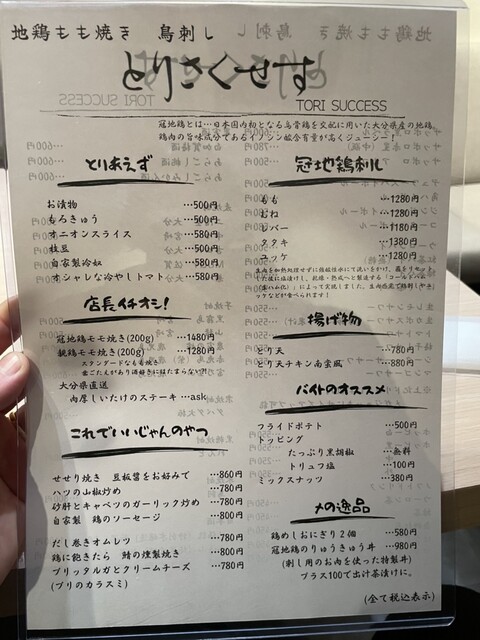 地鶏もも焼き 鳥刺し
とりさくせす
TORI SUCCESS
冠地鶏とは…日本国内初となる烏骨鶏を交配に用いた大分県産の地鶏。
鶏肉の旨味成分であるイノシン酸含有量が高くジューシー！
とりあえず
お漬物 …500円
もろきゅう …500円
オニオンスライス …580円
枝豆 …500円
自家製冷奴 …580円
オシャレな冷やしトマト …580円
店長イチオシ!
冠地鶏モモ焼き(200g) …1480円
親鶏モモ焼き(200g) …1280円
スタンダードなもも焼き
歯ごたえがあり酒好きにはたまらない?!
大分県直送
肉厚しいたけのステーキ …ask
これでいいじゃんのやつ
せせり焼き 豆板醤をお好みで …860円
ハツの山椒炒め …780円
砂肝とキャベツのガーリック炒め …780円
自家製 鶏のソーセージ …800円
だし巻きオムレツ …780円
鶏に飽きたら 鯖の燻製焼き …800円
ブリッタルガとクリームチーズ …780円
(ブリのカラスミ)
冠地鶏刺し
もも …1280円
むね …1280円
レバー …1180円
タタキ …1380円
ユッケ …1280円
揚げ物
とり天 …780円
とり天チキン南蛮風 …880円
バイトのオススメ
フライドポテト …500円
トッピング
たっぷり黒胡椒 …無料
トリュフ塩 …100円
ミックスナッツ …380円
〆の逸品
鶏めしおにぎり2個 …580円
冠地鶏のりゅうきゅう丼 …980円
(刺し用のお肉を使った特製丼)
プラス100で出汁茶漬けに。
(全て税込表示)